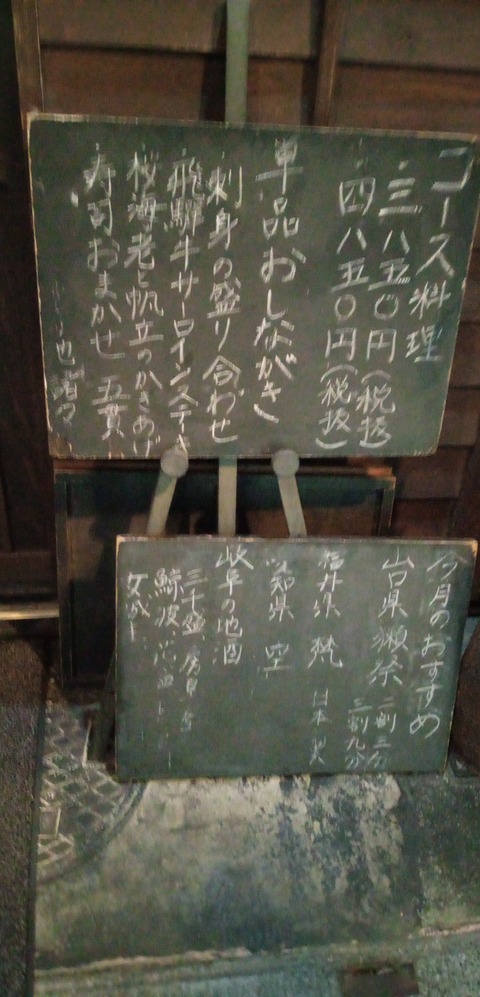 コース料理
・三八五〇円(税抜)
・四八五〇円(税抜)
単品おしながき
・刺身の盛り合わせ
・飛騨牛サーロインステーキ
・桜海老と帆立のかきあげ
・寿司おまかせ 五貫
今月のおすすめ
山口県 獺祭 二割三分
三割九分
福井県 梵 日本の翼
愛知県 空
岐阜の地酒
三千盛、房島屋
鯨波、
女城主